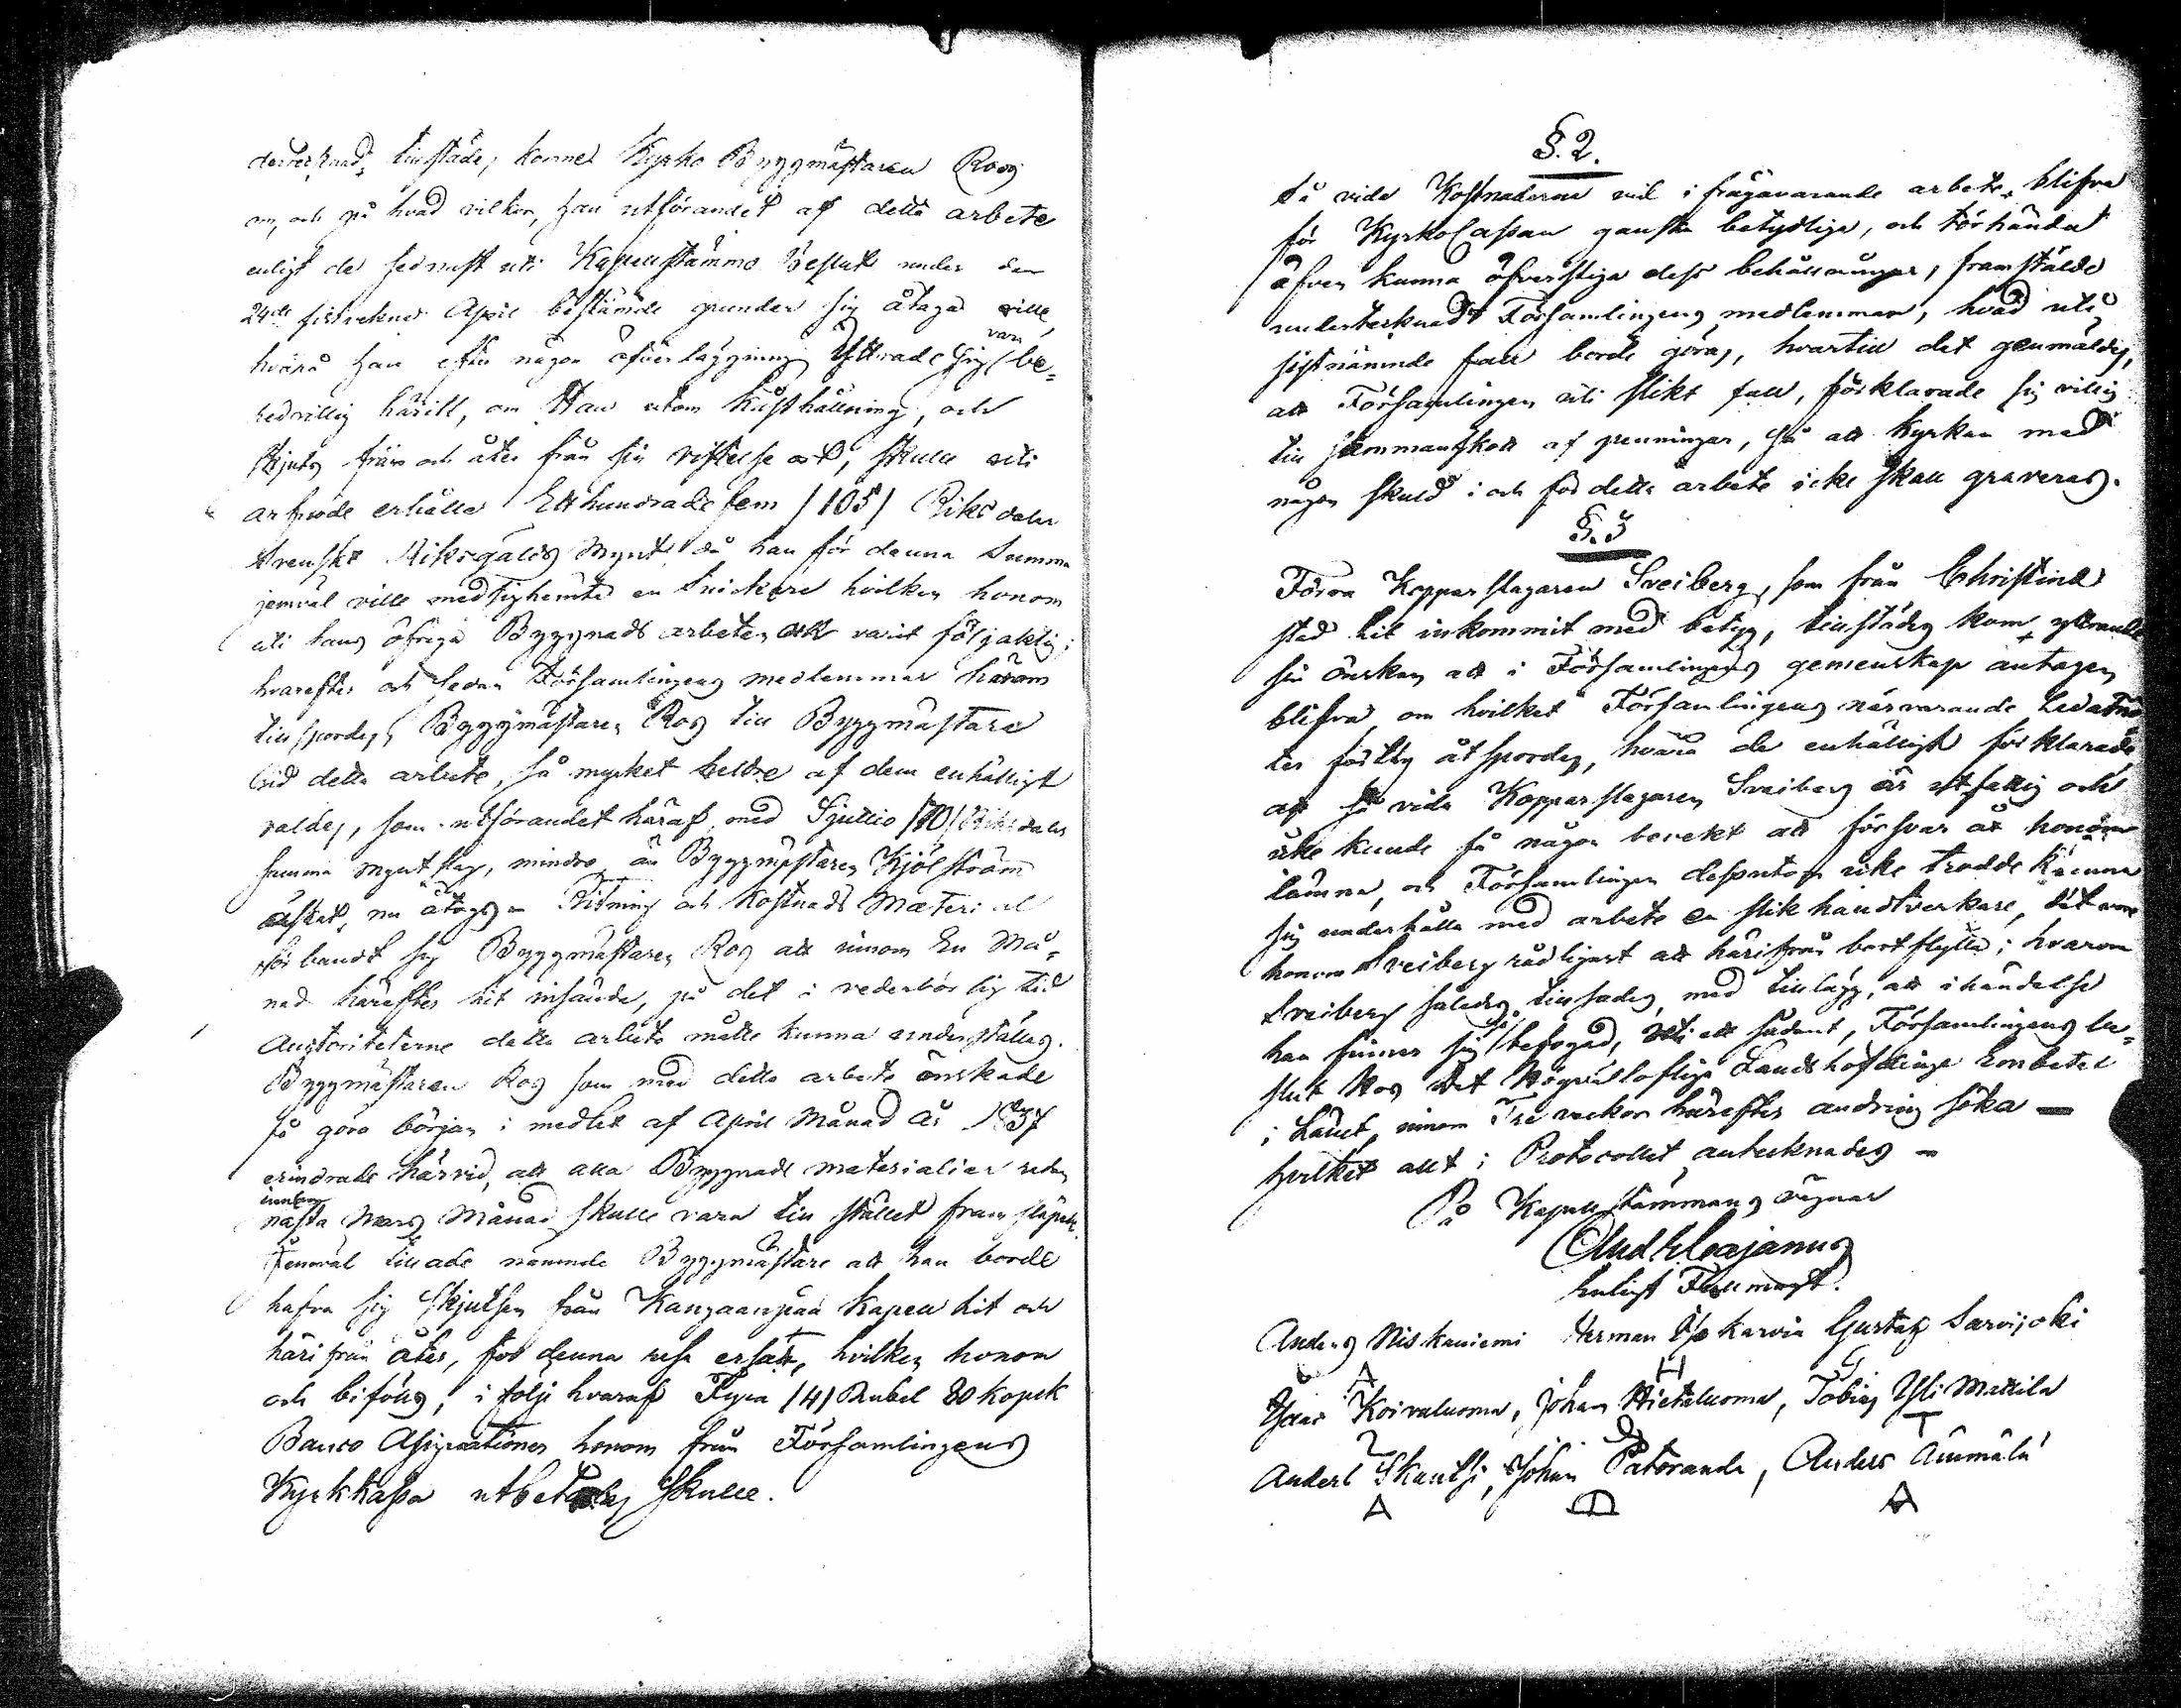 tillstäde, kommer Kyrko Byggmästaren Roos
om, och på hvad vilkor, han utförandet af detta arbete
enligt de sednast uti Kapellstämmo Beslut under den
24de sistvekne April bestämde grunder sig åtaga ville,
hvarå han efter någon öfverläggning yttrade sig vara be=
redvillig härtill, om Han utom kåsthållning, och
skjuts fram och åter från sin vistelse ort, skulle uti
arfvode erhålla Etthundrade fem /105/ Riksdaler
Svenskt Riksgälds Mynt då han för denna Summa
jemväl ville medsighemta en Snickare hvilken honom
uti hans öfriga Byggnads arbeten varit följaktig;
hvarefter och sedan Församlingens medlemmar härom
tillspordes, Byggmästaren Ros till Byggmästare
vid detta arbete, så mycket heldre af dem enhälligt
valdes, som utförandet häraf med Sjuttio /70/ Riksdaler
samma myntslag, mindre än Byggmästaren Kjölström
äskat, nu åtogs. Ritning och Kostnads Material
förbandt sig Byggmästaren Ros att innom En Må=
nad härefter hit insända, på det i vederbörlig tid
Auctoriteterne detta arbete måtte kunna underställas.
Byggmästaren Ros som med detta arbete önskade
få göra början i medlet af April Månad År 1837
erindrade härvid, att alla Byggnads materialier redan
innan
nästa Mars Månad skulle vara till stället framsläpade.
Jemväl nämnde Byggmästare att han borde
hafva sig skjutsen från Kangaanpää Kapell hit och
härifrån åter, för denna resa ersatt, hvilken honom
och bifölls, i följe hvaraf Fyra /4/ Rubel 80 kopek
Banco Assignationer honom från Församlingens
Kyrkkassa utbetalas skulle.
§. 2.
Så vida Kostnaderne vid ifrågavarande arbete, blifva
för KyrkoCassan ganska betydlige, och törhända
äfven kunna öfverstiga dess behållningar, framstälde
undertecknadt Församlingens medlemmar, hvad uti
sistnämnde fall borde göras, hvartill det genmäldes,
att Församlingen uti slikt fall, förklarade sig villig
till sammanskott af penningar, så att Kyrkan med
någon skuld i och för detta arbete icke skall graveras.
§. 3
Förra Kopparslagaren Sveiberg, som från Christine
stad hit inkommit med betyg, tillstädes kom yttrande
sin önskan att i Församlingens gemenskap antagen
blifva om hvilket Församlingens närvarande Ledamö
ter åtspordes, hvarå de enhälligt förklarade
att så vida Kopparslagaren Sveiberg är utfattig och
icke kunde få någon berekt att försvar åt honom
lämna, och Församlingen dessutom icke trodde kunna
sig underhålla med arbete en slik handtverkare, det vore
honom Sveiberg rådligast att härifrån bortflytta; hvarom
Sveiberg således tillsades, med tillägg, att ihändelse
han finner sig befogad, uti ett sådant, Församlingens be=
slut hos Det Högvälloflige Landshöfdinge Embetet
i Länet, innom Tre veckor härefter ändring söka —
hvilket allt i Protocollet antecknades —
På Kapellstämmans vägnar
And Elvajanus
Enligt Fullmagt.
Anders Niskaniemi Herman Karvia Gustaf Sarvijoki
A H G
Koivaluoma, Johan Hietaluoma, Tobias Yli Mattila
T
Anders Skantsi, Johan Patoranda, Anders Ämmälä
A A